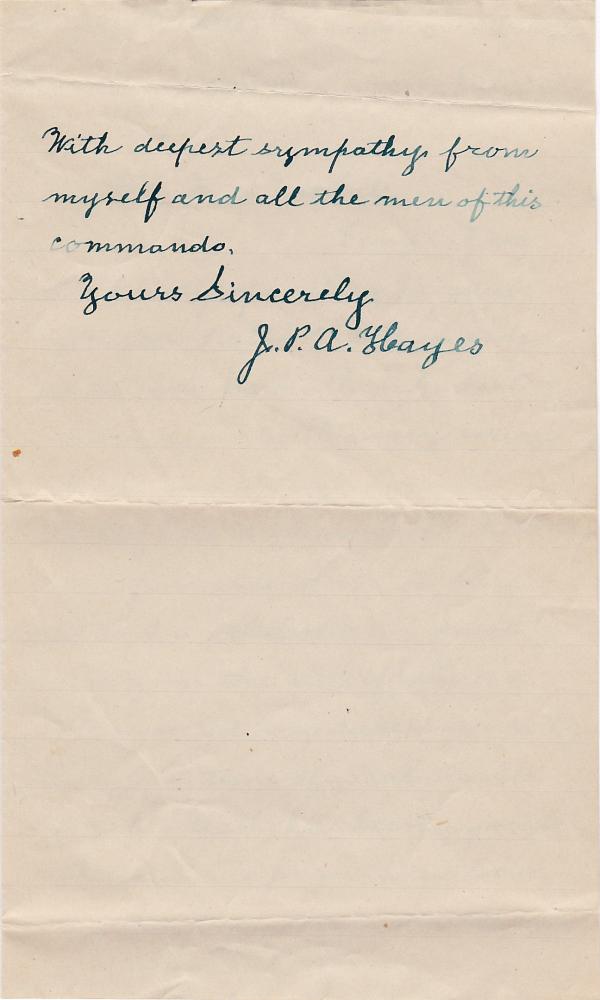 With deepest sympathy from
myself and all the men of this
commando.
Yours Sincerely
J. P. A. Hayes